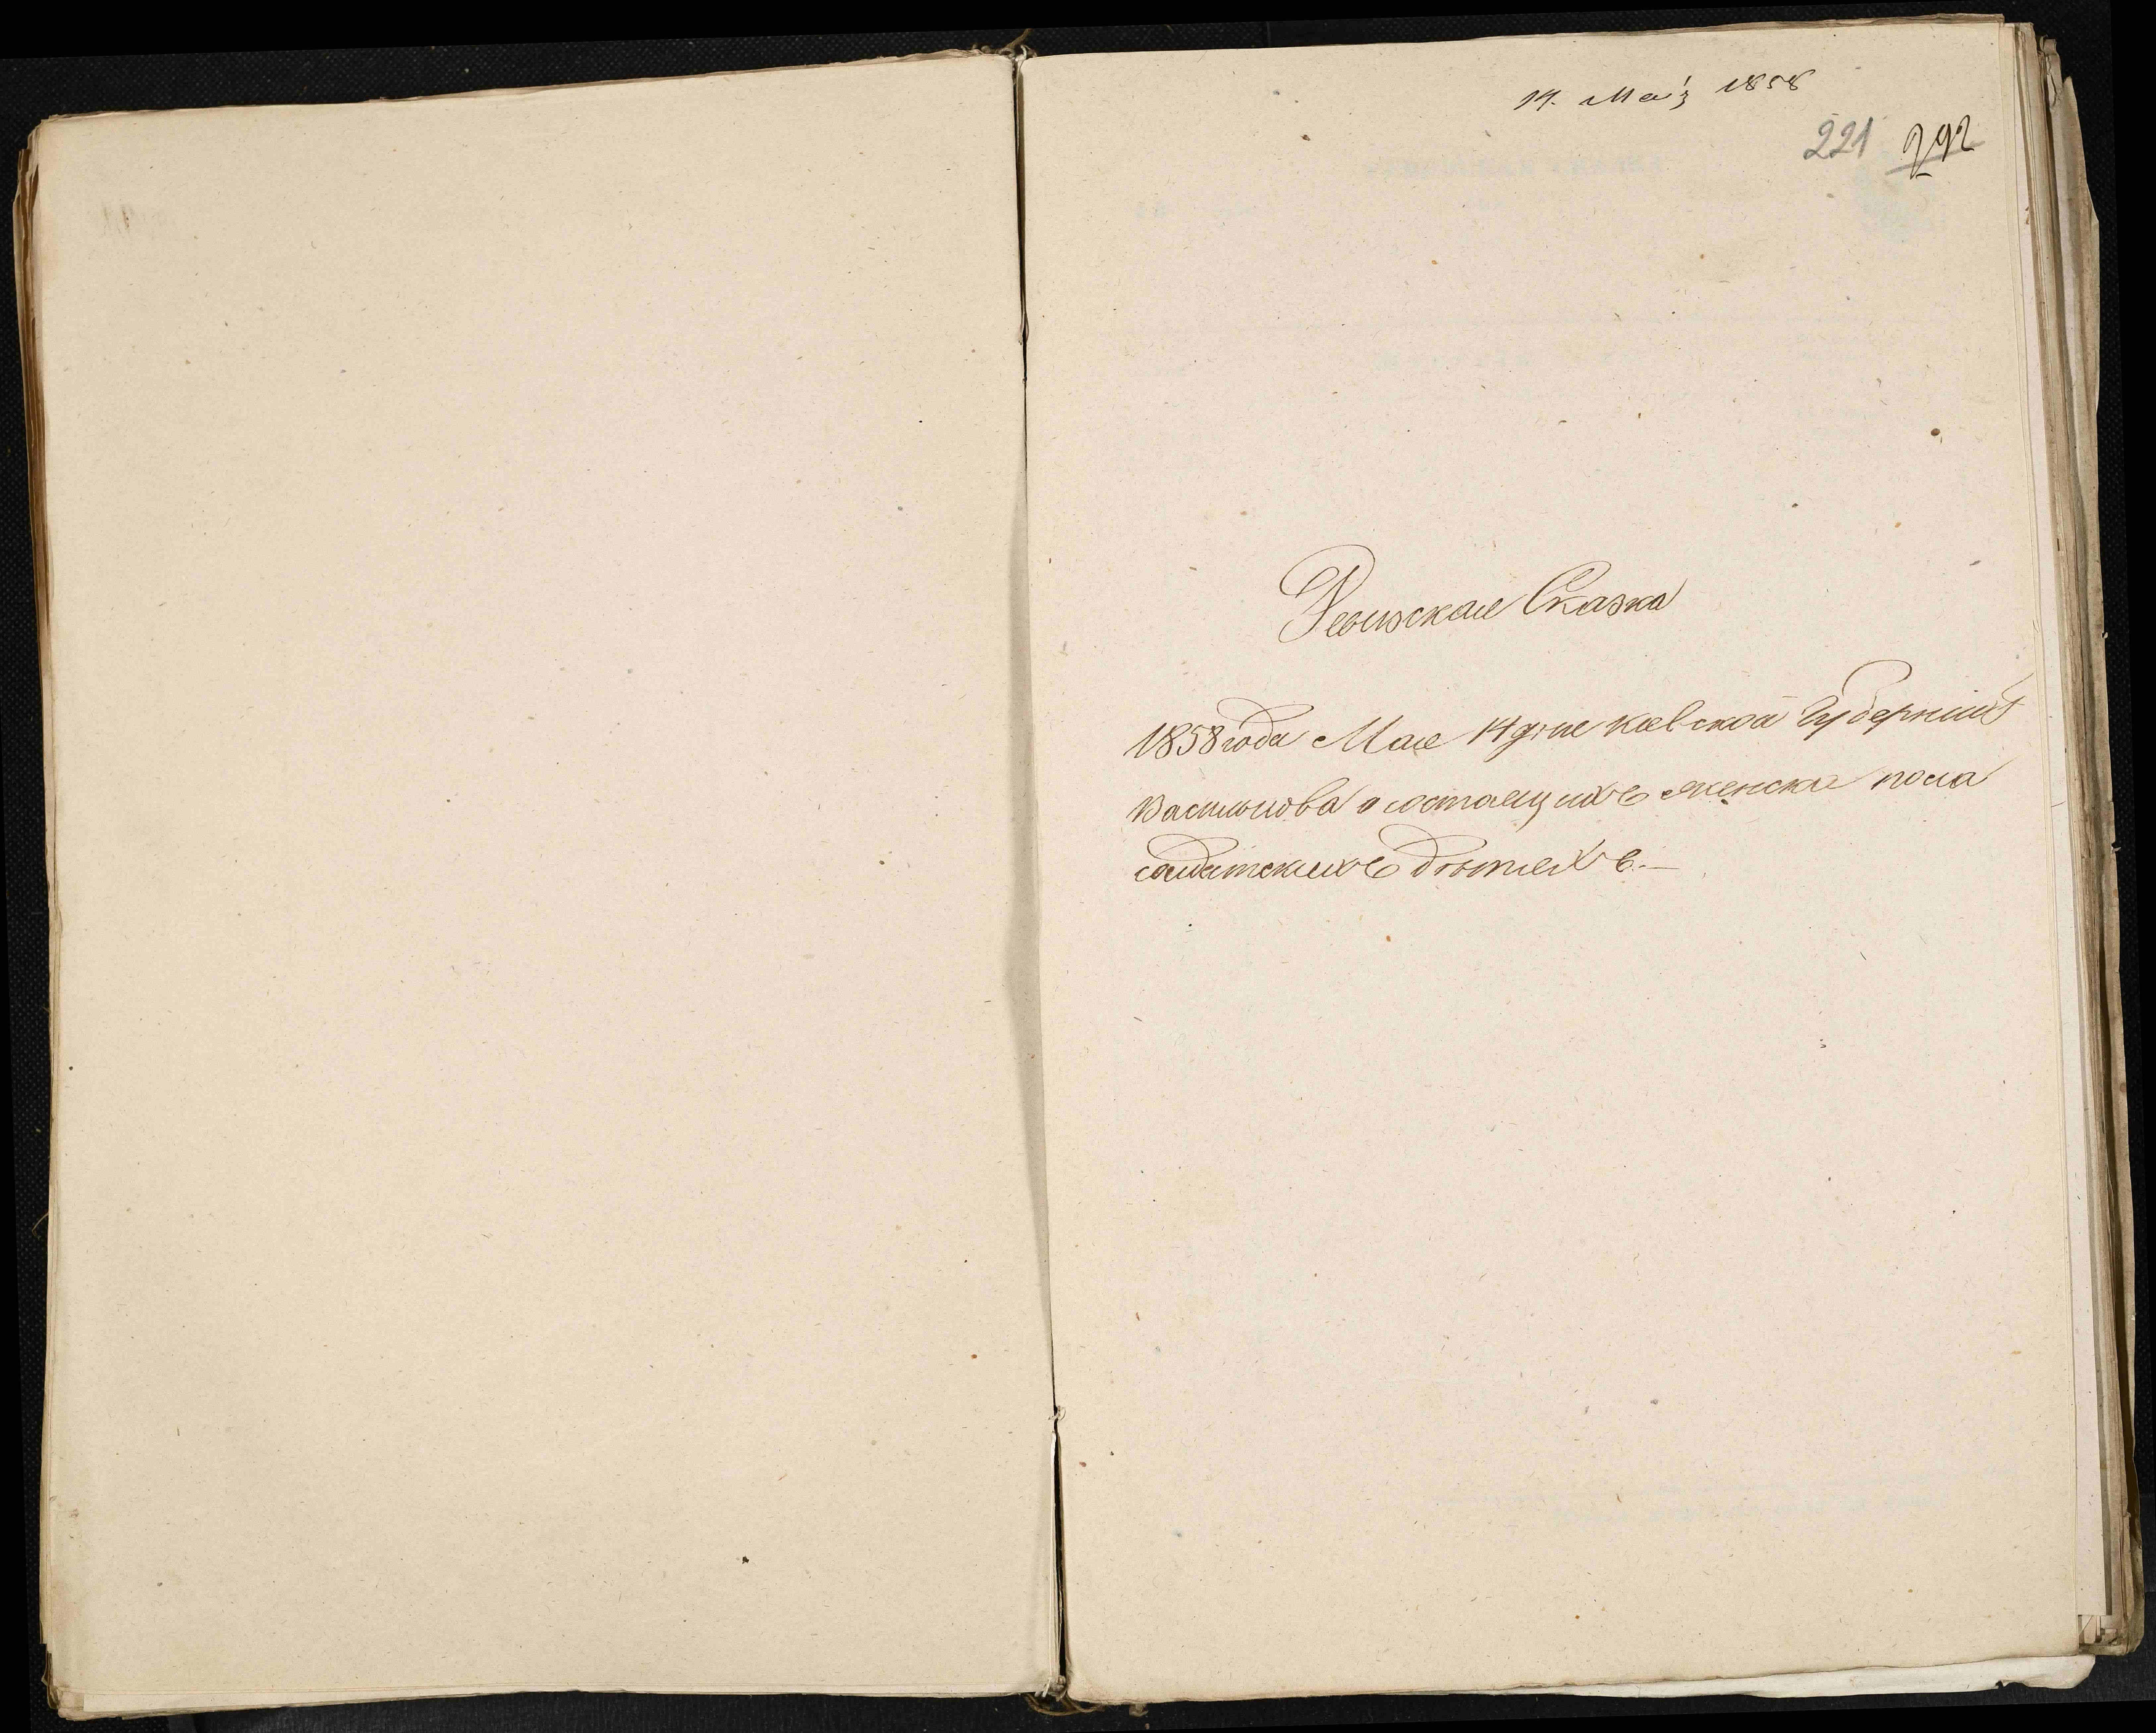 14. Маія 1858
221 292
Ревизская Сказка
1858 года Мая 14 дня Киевской Губерніи
Василькова о состаящихъ женска пола
салдатскихъ дѣтехъ.—